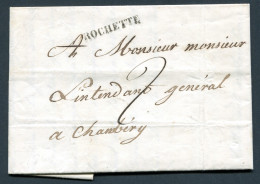 ROCHETTE
A Monsieur monsieur
L'intendant général
a Chambéry